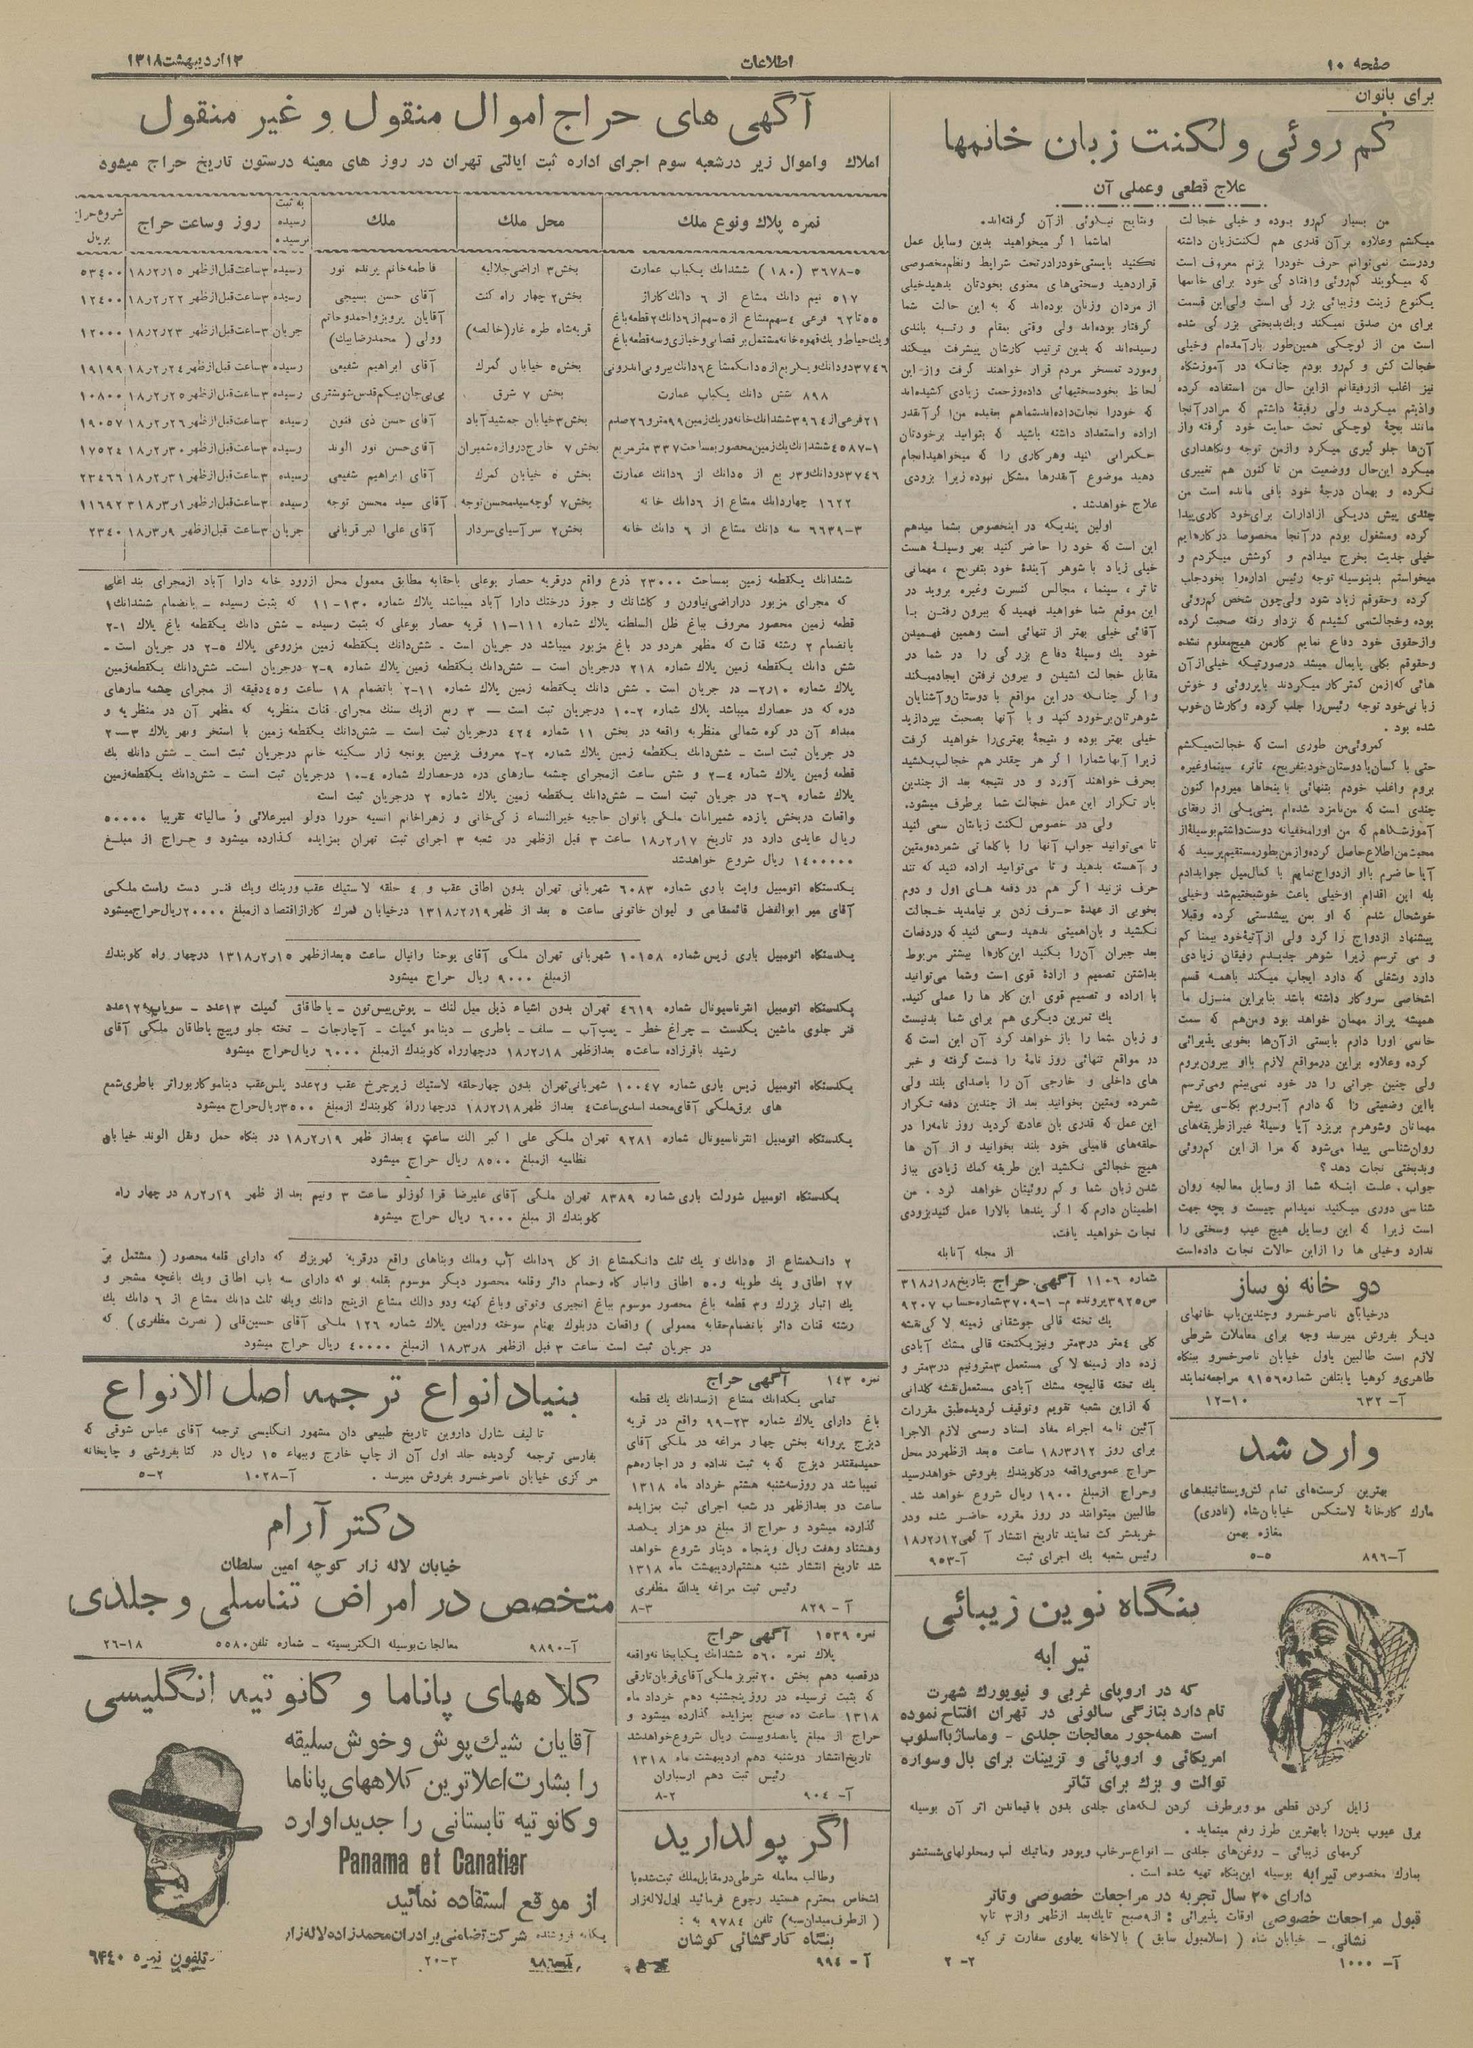 صفحه ۱۰
اطلاعات
۱۳ اردیبهشت ۱۳۱۸
برای بانوان
کم روئی و لکنت زبان خانمها
علاج قطعی و عملی آن
من بسیار کم‌رو بوده و خیلی خجالت
میکشم وعلاوه بر آن قدری هم لکنت‌زبان داشته
ودرست نمی‌توانم حرف خودرا بزنم معروف است
که میگویند کم‌روئی وافتادگی خود برای خانمها
یکنوع زینت وزیبائی بزرگی است ولی‌این قسمت
برای من صدق نمیکند ویک‌بدبختی بزرگی شده
است من از کوچکی همین‌طور بارآمده‌ام وخیلی
خجالت کش و کم‌رو بودم چنانکه در آموزشگاه
نیز اغلب ازرفیقانم ازاین حال من استفاده کرده
واذیتم میکردند ولی رفیقهٔ داشتم که مرادرآنجا
مانند بچهٔ کوچکی تحت حمایت خود گرفته واز
آن‌ها جلوگیری میکرد وازمن توجه ونگاهداری
میکرد این‌حال ووضعیت من تاکنون هم تغییری
نکرده و بهمان درجهٔ خود باقی مانده است من
چندی پیش دریکی ازادارات برای‌خود کاری‌پیدا
کرده ومشغول بودم درآنجا مخصوصا درکارهایم
خیلی جدیت بخرج میدادم و کوشش میکردم و
میخواستم بدینوسیله توجه رئیس اداره‌را بخودجلب
کرده وحقوقم زیاد شود ولی‌چون شخص کم‌روئی
بوده وخجالت‌می کشیدم که نزداو رفته صحبت کرده
وازحقوق خود دفاع نمایم کارمن هیچ‌معلوم نشده
وحقوقم بکلی پایمال میشد درصورتیکه خیلی‌ازآن
هائی که‌ازمن کمتر کار میکردند باپرروئی و خوش
زبانی‌خود توجه رئیس‌را جلب کرده وکارشان‌خوب
شده بود .
کمروئی‌من طوری است که خجالت‌میکشم
حتی با کسان‌یادوستان‌خودبتفریح، تاتر، سینماوغیره
بروم واغلب خودم بتنهائی باینجاها میروم‌اکنون
چندی است که من‌نامزد شده‌ام یعنی‌یکی از رفقای
آموزشگاهم که من اورامخفیانه دوست‌داشتم‌بوسیلهٔ‌از
محبت‌من‌اطلاع‌حاصل کرده‌وازمن‌بطورمستقیم‌پرسید که
آیاحاضرم بااو ازدواج‌نمایم با کمال‌میل جوابدادم
بله این اقدام اوخیلی باعث خوشبختیم‌شد وخیلی
خوشحال شدم که او بمن پیشدستی کرده وقبلا
پیشنهاد ازدواج را کرد ولی ازآتیهٔ‌خود بیمناکم
و می ترسم زیرا شوهر جدیدم رفیقان زیادی
دارد وشغلی که دارد ایجاب میکند باهمه قسم
اشخاصی سروکار داشته باشد بنابراین منزل ما
همیشه پراز مهمان خواهد بود ومن‌هم که سمت
خانمی اورا دارم بایستی ازآن‌ها بخوبی پذیرائی
کرده وعلاوه براین درمواقع لازم بااو بیرون‌بروم
ولی چنین جرئتی را در خود نمی‌بینم ومی‌ترسم
بااین وضعیتی را که دارم آبرویم بکلی پیش
مهمانان وشوهرم بریزد آیا وسیلهٔ غیرازطریقه‌های
روان‌شناسی پیدا می‌شود که مرا از این کم‌روئی
وبدبختی نجات دهد؟
جواب . علت اینکه شما از وسایل معالجه روان
شناسی دوری میکنید نمیدانم چیست و بچه جهت
است زیرا که این وسایل هیچ عیب وسختی را
ندارد وخیلی ها را ازاین حالات نجات داده‌است
ونتایج نیکوئی ازآن گرفته‌اند.
اماشما اگر میخواهید بدین وسایل عمل
نکنید بایستی‌خودرادرتحت شرایط ونظم‌مخصوصی
قراردهید وسختی‌های معنوی بخودتان بدهیدخیلی
از مردان وزنان بوده‌اند که به این حالت شما
گرفتار بوده‌اند ولی وقتی بمقام و رتبه بلندی
رسیده‌اند که بدین ترتیب کارشان پیشرفت میکند
ومورد تمسخر مردم قرار خواهند گرفت وازاین
لحاظ بخودسختیهائی داده‌وزحمت زیادی کشیده‌اند
که خودرا نجات‌داده‌اندشماهم بعقیده من‌اگرآنقدر
اراده واستعداد داشته باشید که بتوانید برخودتان
حکمرانی کنید وهرکاری را که میخواهیدانجام
دهید موضوع آنقدرها مشکل نبوده زیرا بزودی
علاج خواهدشد.
اولین پندیکه دراینخصوص بشما میدهم
این است که خود را حاضر کنید بهر وسیلهٔ هست
خیلی زیاد با شوهر آیندهٔ خود بتفریح ، مهمانی
تاتر ، سینما ، مجالس کنسرت وغیره بروید در
این موقع شما خواهید فهمید که بیرون رفتن با
آقائی خیلی بهتر از تنهائی است وهمین فهمیدن
خود یک وسیلهٔ دفاع بزرگی را در شما در
مقابل خجالت کشیدن و بیرون نرفتن ایجادمیکند
و اگر چنانکه دراین مواقع بادوستان‌وآشنایان
شوهرتان‌برخورد کنید و با آنها بصحبت بپردازید
خیلی بهتر بوده و نتیجهٔ بهتری‌را خواهید گرفت
زیرا آنهاشمارا اگر هر چقدر هم خجالت‌بکشید
بحرف خواهند آورد و در نتیجه بعد از چندین
بار تکرار این عمل خجالت شما برطرف میشود.
ولی در خصوص لکنت زبانتان سعی کنید
تا می‌توانید جواب آنها را باکلماتی شمرده‌ومتین
و آهسته بدهید و تا می‌توانید اراده کنید که تند
حرف نزنید اگر هم در دفعه های اول و دوم
بخوبی از عهدهٔ حرف زدن بر نیامدید خجالت
نکشید و بآن‌اهمیتی ندهید وسعی کنید که دردفعات
بعد جبران آن‌را بکنید این‌کارها بیشتر مربوط
بداشتن تصمیم و ارادهٔ قوی است وشما می‌توانید
با اراده و تصمیم قوی این کار ها را عملی کنید.
یک تمرین دیگری هم برای شما بدنیست
و زبان شما را باز خواهد کرد آن این است که
در مواقع تنهائی روز نامهٔ را دست گرفته و خبر
های داخلی و خارجی آن را باصدای بلند ولی
شمرده ومتین بخوانید بعد از چندین دفعه تکرار
این عمل که قدری بان عادت کردید روز نامه‌را در
حلقه‌های فامیلی خود بلند بخوانید و از آن ها
هیچ خجالتی نکشید این طریقه کمک زیادی بباز
شدن زبان شما و کم روئیتان خواهد کرد . من
اطمینان دارم که اگر پندها بالارا عمل کنیدبزودی
نجات خواهید یافت.
از مجله آنابله
دو خانه نوساز
درخیابان ناصرخسرو وچندین‌باب خانهای
دیگر بفروش میرسد وجه برای معاملات شرطی
لازم است طالبین باول خیابان ناصرخسرو ببنگاه
طاهری‌و کوهیا یابتلفن شماره ۹۱۵۶ مراجعه‌نمایند
آ- ۶۳۲ ۱۰-۱۲
وارد شد
بهترین کرست‌های تمام کش‌وپستانبندهای
مارک کارخانهٔ لاستکس خیابان‌شاه (نادری)
مغازه بهمن
آ-۸۹۶ ۵-۵
شماره ۱۱۰۶ آگهی حراج بتاریخ۳۱۸٫۱٫۸
ص۳۹۲۵پرونده م- ۱-۳۷۰۹شماره‌حساب ۹۲۰۷
یک تخته قالی جوشقانی زمینه لاکی‌نقشه
گلی ۴متر در۳متر ونیزیکتخته قالی مشک آبادی
زده دار زمینه لاکی مستعمل ۳مترونیم در۳متر و
یک تخته قالیچه مشک آبادی مستعمل‌نقشه گلدانی
که ازاین شعبه تقویم وتوقیف گردیده‌طبق مقررات
آئین نامه اجراء مفاد اسناد رسمی لازم الاجرا
برای روز ۱۸٫۳٫۱۲ ساعت ۵بعد ازظهردر محل
حراج عمومی‌واقعه درگلوبندک بفروش خواهدرسید
وحراج ازمبلغ ۱۹۰۰ ریال شروع خواهد شد .
طالبین میتوانند در روز مقرره حاضر شده ودر
خریدشرکت نمایند تاریخ انتشار آگهی۱۸٫۲٫۱۲
رئیس شعبه یک اجرای ثبت آ-۹۵۳
بنگاه نوین زیبائی
تیرابه
که در اروپای غربی و نیویورک شهرت
تام دارد بتازگی سالونی در تهران افتتاح نموده
است همه‌جور معالجات جلدی - وماساژبااسلوب
امریکائی و اروپائی و تزیینات برای بال وسواره
توالت و بزک برای تئاتر
زایل کردن قطعی مو وبرطرف کردن لکه‌های جلدی بدون باقیماندن اثر آن بوسیله
برق عیوب بدن‌را بابهترین طرز رفع مینماید .
کرمهای زیبائی - روغن‌های جلدی - انواع‌سرخاب وپودر وماتیک لب ومحلولهای‌شستشو
بمارک مخصوص تیرابه بوسیله این‌بنگاه تهیه شده است .
دارای ۲۰ سال تجربه در مراجعات خصوصی وتاتر
قبول مراجعات خصوصی اوقات پذیرائی : از۹صبح تایک‌بعد ازظهر واز۳ تا۷
نشانی - خیابان شاه ( اسلامبول سابق ) بالاخانه پهلوی سفارت ترکیه
آ- ۱۰۰۰ ۲-۲
آگهی های حراج اموال منقول و غیر منقول
املاک واموال زیر درشعبه سوم اجرای اداره ثبت ایالتی تهران در روز های معینه درستون تاریخ حراج میشود
نمره پلاک ونوع ملک محل ملک ملک به ثبت رسیده نرسیده روز وساعت حراج شروع‌حراج بریال
۵-۳۶۷۸ (۱۸۰) ششدانک یکباب عمارت بخش۳ اراضی‌جلالیه فاطمه‌خانم پرنده نور رسیده ۳ساعت‌قبل‌ازظهر ۱۸٫۲٫۱۵ ۵۳۴۰۰
۵۱۷ نیم دانک مشاع از ۶ دانک‌کاراژ بخش۲ چهار راه کنت آقای حسن بسیجی رسیده ۳ساعت‌قبل‌ازظهر ۱۸٫۲٫۲۲ ۱۲۴۰۰
۵۵تا۶۲ فرعی ۴سهم‌مشاع از۵سهم‌از۶دانک۲قطعه‌باغ
ویک‌حیاط ویک‌قهوه‌خانه‌مشتمل‌بر قصابی‌وخبازی‌وسه‌قطعه‌باغ قریه‌شاه طره غار(خالصه) آقایان پرویزواحمدوخانم
وولی ( محمدرضابیک) جریان ۳ساعت‌قبل‌ازظهر ۱۸٫۲٫۲۳ ۱۲۰۰۰
۳۷۴۶دودانک‌ویکربع‌از۵دانکمشاع ۶دانک‌بیرونی‌اندرونی بخش۵ خیابان گمرک آقای ابراهیم شفیعی رسیده ۳ساعت‌قبل‌ازظهر ۱۸٫۲٫۲۴ ۱۹۱۹۹
۸۹۸ شش دانک یکباب عمارت بخش ۷ شرق بی‌بی‌جان‌بیگم‌قدس‌شوشتری رسیده ۳ساعت‌قبل‌ازظهر ۱۸٫۲٫۲۵ ۱۰۸۰۰
۲۱فرعی‌از۳۹۶۴ششدانک‌خانه‌دریک‌زمین۹۹مترو۲۶صدم بخش۳خیابان جمشیدآباد آقای حسن ذی فنون رسیده ۳ساعت‌قبل‌ازظهر ۱۸٫۲٫۲۶ ۱۹۰۵۷
۱-۴۵۸۷ششدانک‌یک‌زمین‌محصوربمساحت ۳۳۷ مترمربع بخش ۷ خارج‌دروازه‌شمیران آقای‌حسن نور الوند رسیده ۳ساعت‌قبل‌ازظهر ۱۸٫۲٫۳۰ ۱۷۵۲۴
۳۷۴۶دودانک‌و۳ر بع از ۵دانک از ۶دانک عمارت بخش ۵ خیابان گمرک آقای ابراهیم شفیعی رسیده ۳ساعت‌قبل‌ازظهر ۱۸٫۲٫۳۱ ۲۳۴۶۶
۱۶۲۲ چهاردانک مشاع از ۶دانک خانه بخش۷ کوچه‌سیدمحسن‌توجه آقای سید محسن توجه رسیده ۳ساعت‌قبل‌ازظهر ۳۱۸٫۳٫۱ ۱۱۶۹۲
۳-۶۶۳۹ سه دانک مشاع از ۶ دانک خانه بخش۲ سرآسیای‌سردار آقای علی‌اکبر قربانی جریان ۳ساعت قبل‌ازظهر ۱۸٫۳٫۹ ۲۳۴۰
ششدانک یکقطعه زمین بمساحت ۲۳۰۰۰ ذرع واقع درقریه حصار بوعلی باحقابه مطابق معمول محل ازرود خانه دارا آباد ازمجرای بند اعلی
که مجرای مزبور دراراضی‌نیاورن و کاشانک و جوز درختک دارا آباد میباشد پلاک شماره ۱۳۰-۱۱ که بثبت رسیده - بانضمام ششدانک۱
قطعه زمین محصور معروف بباغ ظل السلطنه پلاک شماره ۱۱۱-۱۱ قریه حصار بوعلی که بثبت رسیده - شش دانک یکقطعه باغ پلاک ۱-۲
بانضمام ۲ رشته قنات که مظهر هردو در باغ مزبور میباشد در جریان است - شش دانک یکقطعه زمین مزروعی پلاک ۵-۲ در جریان است -
شش دانک یکقطعه زمین پلاک شماره ۲۱۸ درجریان است - شش‌دانک یکقطعه زمین پلاک شماره ۹-۲ درجریان است- شش‌دانک یکقطعه‌زمین
پلاک شماره ۲٫۱۰- در جریان است . شش دانک یکقطعه زمین پلاک شماره ۱۱-۲ بانضمام ۱۸ ساعت و۴۵دقیقه از مجرای چشمه سارهای
دره که در حصارک میباشد پلاک شماره ۲-۱۰ درجریان ثبت است - ۳ ربع ازیک سنک مجرای قنات منظریه که مظهر آن در منظریه و
مبداء آن در کوه شمالی منظریه واقعه در بخش ۱۱ شماره ۴۲۴ درجریان ثبت است - شش‌دانک یکقطعه زمین با استخر ونهر پلاک ۳-۲
در جریان ثبت است - شش‌دانک یکقطعه زمین پلاک شماره ۲-۲ معروف بزمین یونجه زار سکینه خانم درجریان ثبت است - شش دانک یک
قطعه زمین پلاک شماره ۴-۲ و شش ساعت ازمجرای چشمه سارهای دره درحصارک شماره ۴-۱۰ درجریان ثبت است - شش‌دانک یکقطعه‌زمین
پلاک شماره ۶-۲ در جریان ثبت است - شش‌دانک یکقطعه زمین پلاک شماره ۲ درجریان ثبت است
واقعات دربخش یازده شمیرانات ملکی بانوان حاجیه خیرالنساء زکی‌خانی و زهراخانم انسیه حورا دولو امیرعلائی و سالیانه تقریبا ۵۰۰۰۰
ریال عایدی دارد در تاریخ ۱۸٫۲٫۱۷ ساعت ۳ قبل ازظهر در شعبه ۳ اجرای ثبت تهران بمزایده گذارده میشود و حراج از مبلغ
۱۴۰۰۰۰۰ ریال شروع خواهدشد
یکدستگاه اتومبیل وایت باری شماره ۶۰۸۳ شهربانی تهران بدون اطاق عقب و ۴ حلقه لاستیک عقب ورینک ویک فنر دست راست ملکی
آقای میر ابوالفضل قائممقامی و لیوان خاتونی ساعت ۵ بعد از ظهر۱۳۱۸٫۲٫۱۹ درخیابان گمرک کارازاقتصاد ازمبلغ ۲۰۰۰۰ریال‌حراج‌میشود
یکدستگاه اتومبیل باری زیس شماره ۱۰۱۵۸ شهربانی تهران ملکی آقای یوحنا وانیال ساعت ۵بعدازظهر ۱۳۱۸٫۲٫۱۵ درچهار راه گلوبندک
ازمبلغ ۹۰۰۰ ریال حراج میشود
یکدستگاه اتومبیل انترناسیونال شماره ۴۶۱۹ تهران بدون اشیاء ذیل میل لنک - بوش‌پیستون - یاطاقاتی کمپلت ۱۳عدد - سوپاپ۱۲عدد
فنر جلوی ماشین یکدست - چراغ خطر - پمپ‌آب - سلف- باطری - دینامو کمپلت - آچارجات - تخته جلو وپیچ یاطاقان ملکی آقای
رشید باقرزاده ساعت۵ بعدازظهر ۱۸٫۲٫۱۸ درچهارراه گلوبندک ازمبلغ ۶۰۰۰ ریال‌حراج میشود
یکدستگاه اتومبیل زیس باری شماره ۱۰۰۴۷ شهربانی‌تهران بدون چهارحلقه لاستیک زیرچرخ عقب و۲عدد پلس‌عقب دیناموکاربوراتر باطری‌شمع
های برق‌ملکی آقای‌محمد اسدی‌ساعت۴ بعداز ظهر ۱۸٫۲٫۱۸ درچهارراه گلوبندک ازمبلغ ۳۵۰۰ریال‌حراج میشود
یکدستگاه اتومبیل انترناسیونال شماره ۹۲۸۱ تهران ملکی علی اکبر الک ساعت ۴بعداز ظهر ۱۸٫۲٫۱۹ در بنگاه حمل ونقل الوند خیابان
نظامیه ازمبلغ ۸۵۰۰ ریال حراج میشود
یکدستگاه اتومبیل شورلت باری‌شماره ۸۳۸۹ تهران ملکی آقای علیرضا قرا گوزلو ساعت ۳ ونیم بعد از ظهر ۸٫۲٫۱۹ در چهار راه
گلوبندک از مبلغ ۶۰۰۰ ریال حراج میشود
۲ دانک‌مشاع از ۵دانک و یک ثلث دانکمشاع از کل ۶دانک آب وملک وبناهای واقع درقریه کهریزک که دارای قلعه محصور ( مشتمل بر
۲۷ اطاق و یک طویله و۵۰ اطاق وانبار گاه وحمام دائر وقلعه محصور دیگر موسوم بقلعه نو که دارای سه باب اطاق ویک باغچه مشجر و
یک انبار بزرک و۳ قطعه باغ محصور موسوم بباغ انجیری وتوتی وباغ کهنه ودو دانک مشاع ازپنج دانک ویک ثلث دانک مشاع از ۶ دانک یک
رشته قنات دائر بانضمام‌حقابه معمولی ) واقعات دربلوک بهنام سوخته ورامین پلاک شماره ۱۲۶ ملکی آقای حسین‌قلی ( نصرت مظفری ) که
در جریان ثبت است ساعت ۳ قبل ازظهر ۱۸٫۳٫۸ ازمبلغ ۴۰۰۰۰ ریال حراج میشود
نمره ۱۴۳ آگهی حراج
تمامی یکدانک مشاع ازسدانک یک قطعه
باغ دارای پلاک شماره ۲۳-۹۹ واقع در قریه
دیزج پروانه بخش چهار مراغه در ملکی آقای
حمیدمقتدر دیزج که به ثبت نداده و در اجاره‌هم
نمیباشد در روزسه‌شنبه هشتم خرداد ماه ۱۳۱۸
ساعت دو بعدازظهر در شعبه اجرای ثبت بمزایده
گذارده میشود و حراج از مبلغ دو هزار یکصد
وهشتاد وهفت ریال وپنجاه دینار شروع خواهد
شد تاریخ انتشار شنبه هشتم‌اردیبهشت ماه ۱۳۱۸
رئیس ثبت مراغه یدالله مظفری
آ - ۸۲۹ ۳-۸
نمره ۱۵۳۹ آگهی حراج
پلاک نمره ۵۶۰ ششدانک یکبابخانه‌واقعه
درقصبه دهم بخش ۲۰تبریز ملکی‌آقای‌قربان‌تارقی
که بثبت نرسیده در روز پنجشنبه دهم خرداد ماه
۱۳۱۸ ساعت ده صبح بمزایده گذارده میشود و
حراج از مبلغ پانصدوبیست ریال شروع‌خواهدشد
تاریخ‌انتشار دوشنبه دهم اردیبهشت ماه ۱۳۱۸
رئیس ثبت دهم ارسباران
آ- ۹۰۴ ۲-۸
اگر پولدارید
وطالب معامله شرطی‌درمقابل‌ملک ثبت‌شده‌با
اشخاص محترم هستید رجوع فرمائید اول‌لاله‌زار
( ازطرف‌میدان‌سپه) تلفن ۹۷۸۴ به :
بنگاه کارگشائی کوشان
آ- ۹۹۴
بنیاد انواع ترجمه اصل الانواع
تالیف شارل داروین تاریخ طبیعی دان مشهور انگلیسی ترجمه آقای عباس شوقی که
بفارسی ترجمه گردیده جلد اول آن از چاپ خارج وببهاء ۱۵ ریال در کتابفروشی و چاپخانه
مرکزی خیابان ناصرخسرو بفروش میرسد . آ-۱۰۲۸ ۲-۵
دکتر آرام
خیابان لاله زار کوچه امین سلطان
متخصص در امراض تناسلی و جلدی
آ-۹۸۹۰ معالجات بوسیله الکتریسیته - شماره تلفن ۵۵۸۰ ۱۸-۲۶
کلاههای پاناما و کانوتیه انگلیسی
آقایان شیک پوش و خوش سلیقه
را بشارت اعلاترین کلاههای پاناما
و کانوتیه تابستانی را جدیدا وارد
Panama et Canatier
از موقع استفاده نمائید
یگانه فروشنده شرکت تضامنی برادران محمدزاده لاله‌زار
تلفون نمره ۶۴۴۰ ۳-۲۰ آ-۹۸۶